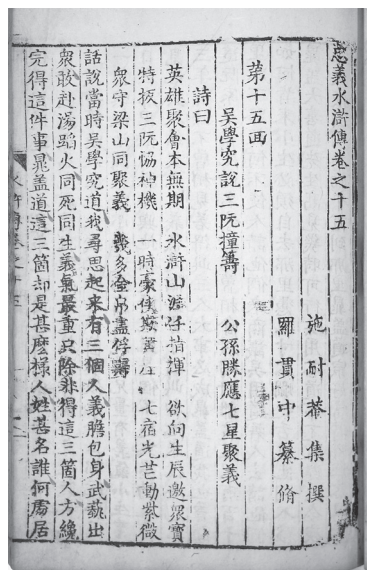 忠義水滸傳卷之十五
施耐菴集撰
羅貫中纂脩
第十五回
吳學究說三阮撞籌　公孫勝應七星聚義
詩曰
英雄聚會本無期　水滸山涯任指揮　欲向生辰邀衆寶
特扳三阮協神機　一時豪俠欺黃屋　七宿光芒動紫微
衆守梁山同聚義　幾多金帛盡俘歸
話說當時吳學究道我尋思起來有三個人義膽包身武藝出
衆敢赴湯蹈火同死同生義氣最重只除非得這三箇人方纔
完得這件事晁蓋道這三箇却是甚麽樣人姓甚名誰何處居